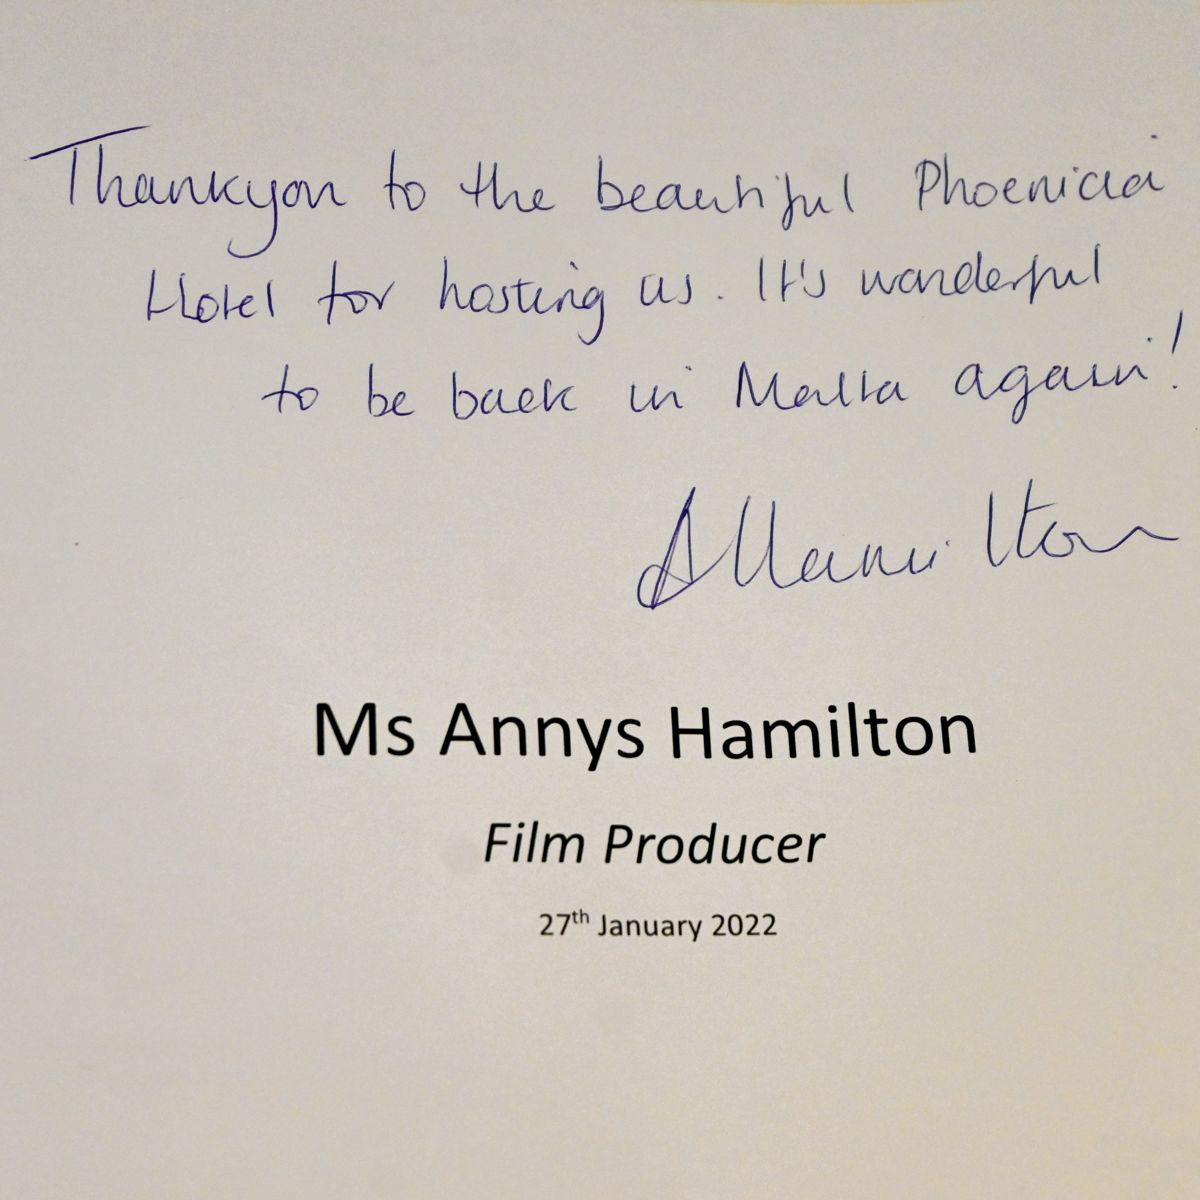 Thankyou to the beautiful Phoenicia
Hotel for hosting us. It's wonderful
to be back in Malta again!
AHamilton
Ms Annys Hamilton
Film Producer
27th January 2022